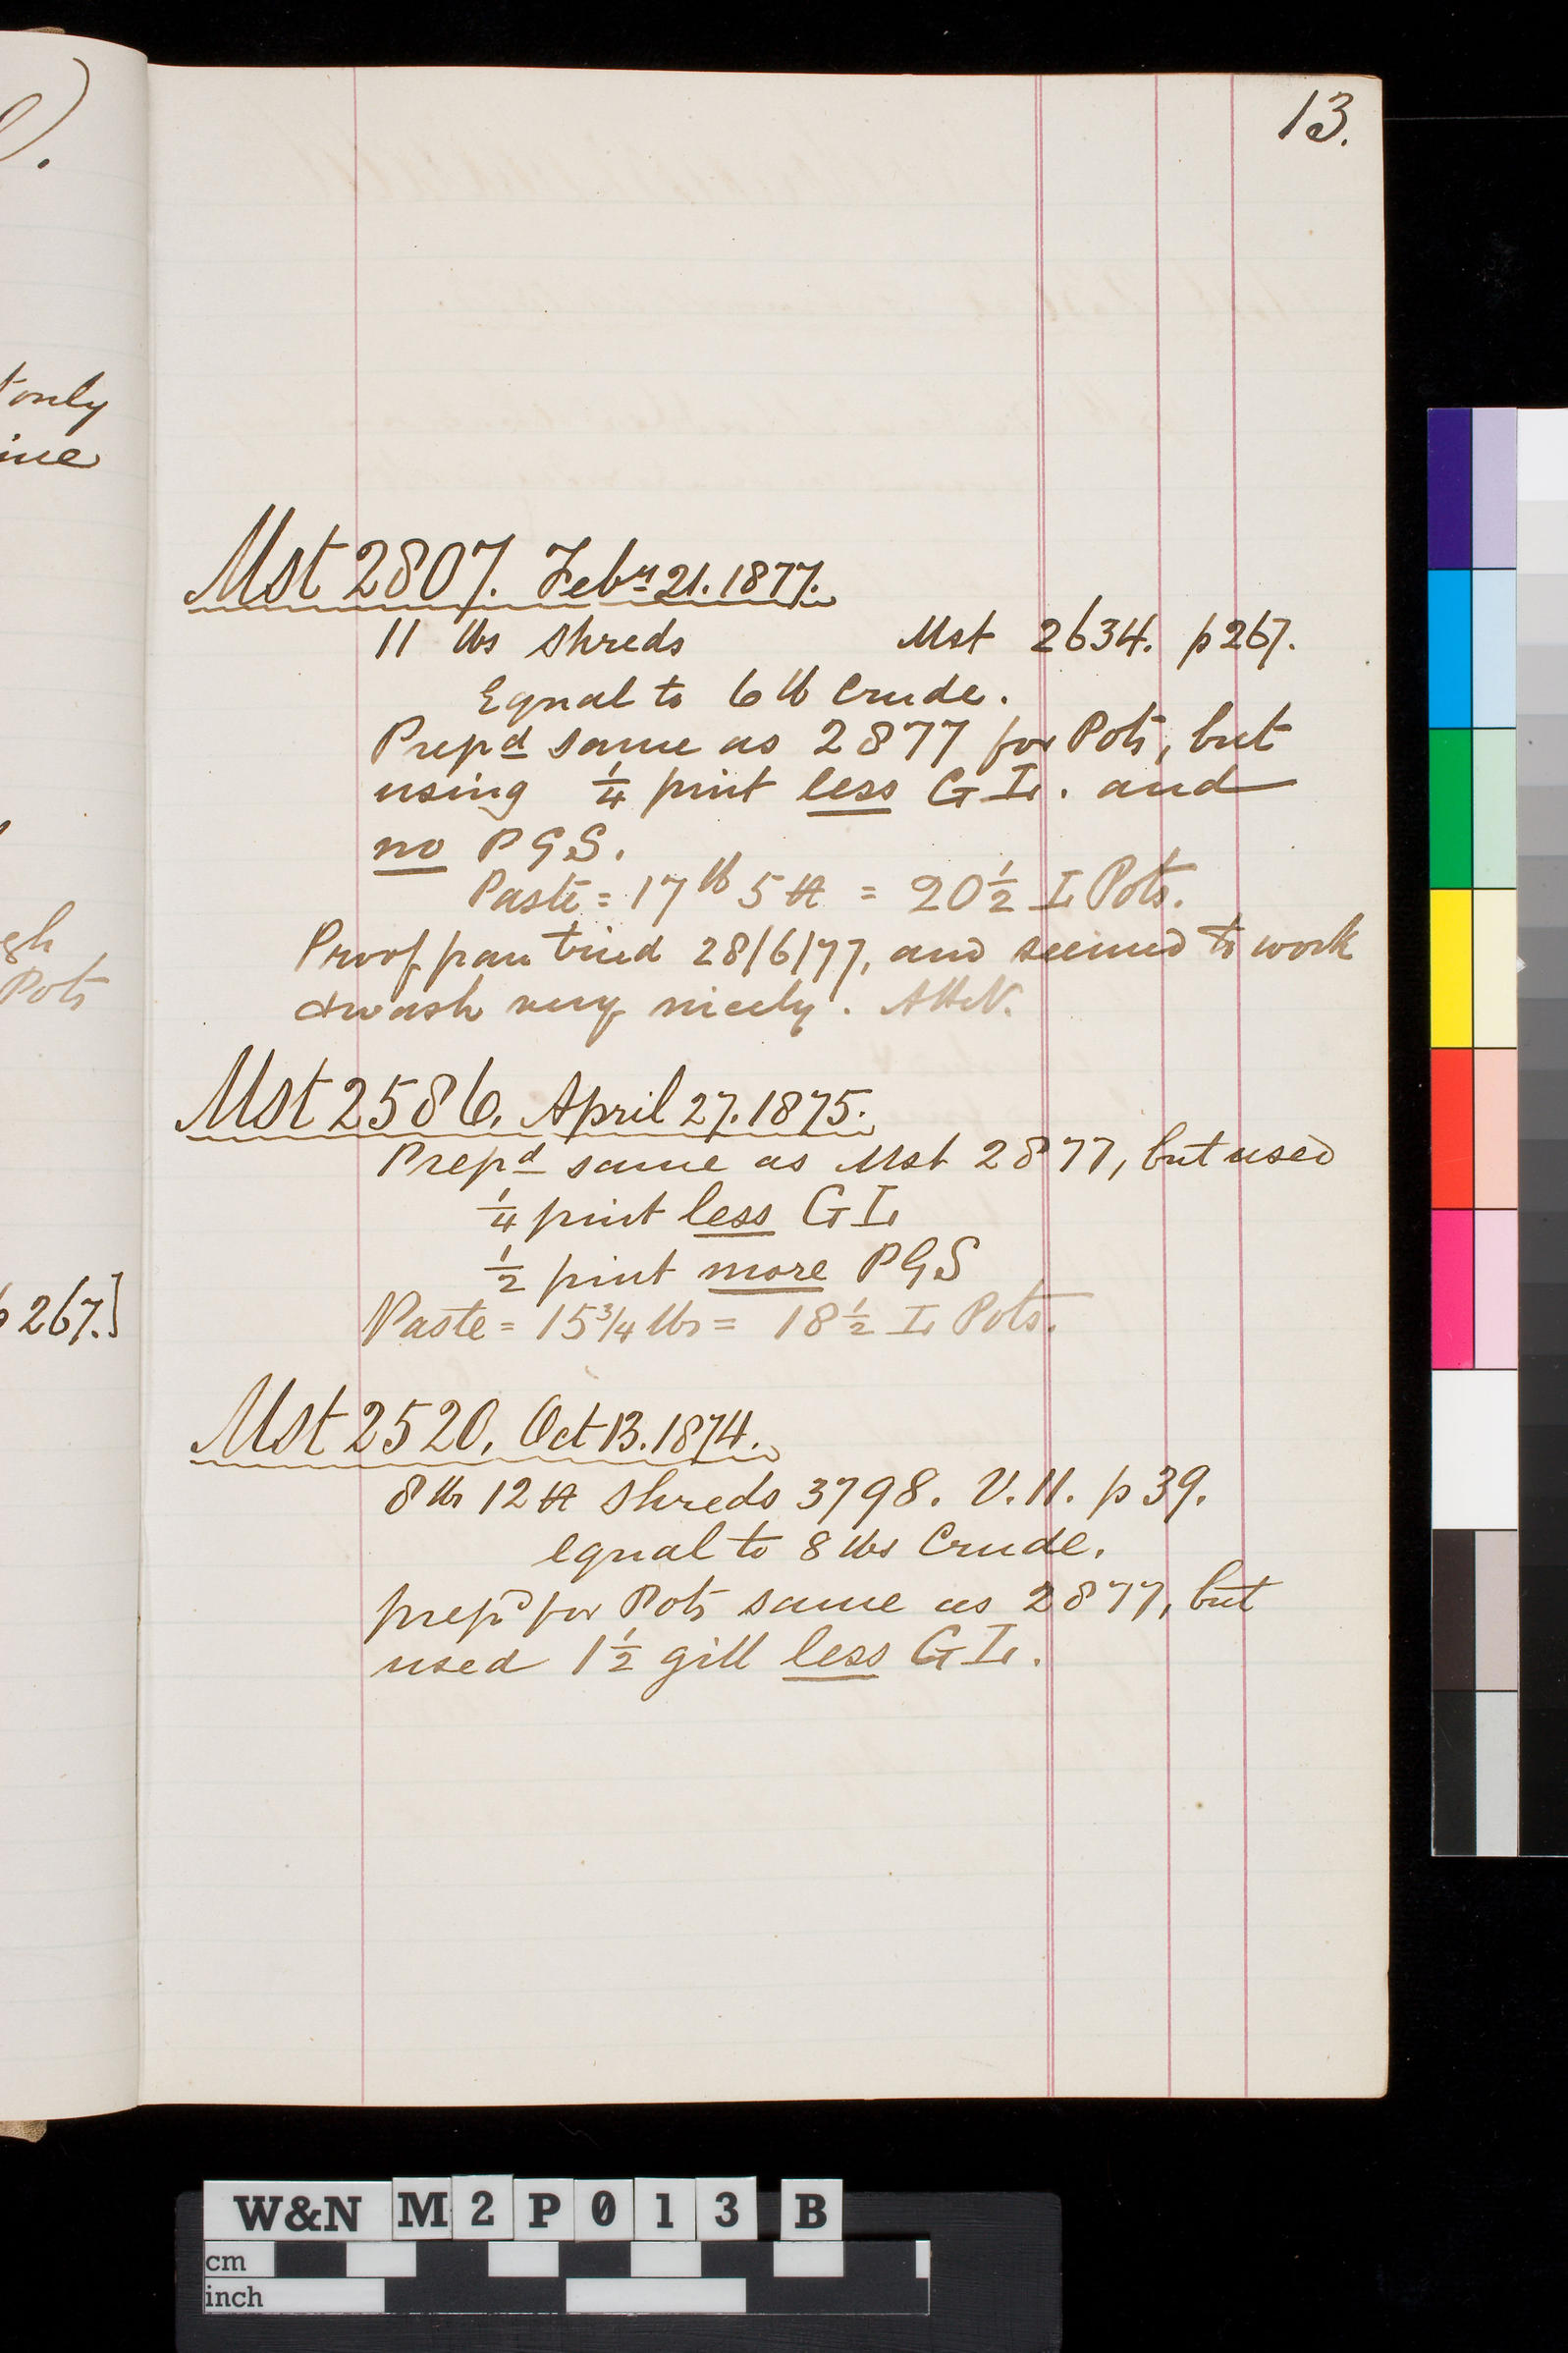 13.
).
t only
ine
Mst 2807. Feby 21. 1877.
11 lbs Shreds Mst 2634. p 267.
Equal to 6 lb Crude.
Prepd same as 2877 for Pots, but
using 1/4 pint less G I. and
no P G S.
Paste = 17 lb 5 = 20 1/2 I Pots.
Proof pan tried 28/6/77, and seemed to work
& wash very nicely.
gh
Pots
Mst 2586. April 27. 1875.
Prepd same as Mst 2877, but used
1/4 pint less G I
1/2 pint more P G S
Paste = 15 3/4 lbs = 18 1/2 I Pots.
p 267.]
Mst 2520. Oct 13. 1874.
8 lbs 12 Shreds 3798. V. 11. p 39.
equal to 8 lbs Crude.
prepd for Pots same as 2877, but
used 1 1/2 gill less G I.
W&N M 2 P 0 1 3 B
cm
inch